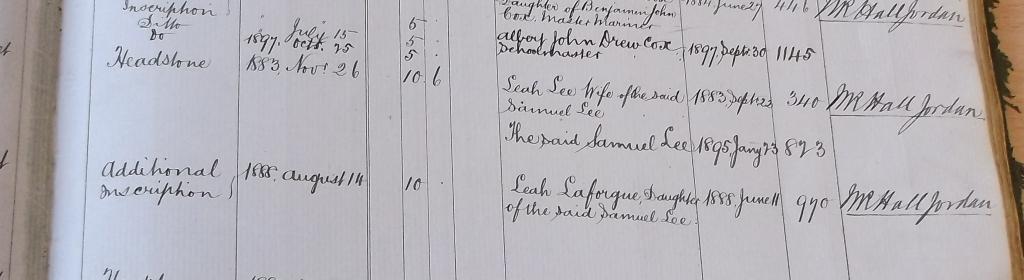 Inscription Daughter of Benjamin John 1884, June 27 446 W R Hall Jordan
Ditto 5 Cox Master Mariner
Do 1897. Oct. 25 5 Albert John Drew Cox, 1897, Sept. 30 1145
July 15 5 Schoolmaster
Headstone 1883, Nov. 26 10 6 Leah Lee Wife of the said 1883, Sept. 340 W R Hall Jordan
Samuel Lee
The said Samuel Lee 1895 Jany 23 823
Additional 1888. August 14 10 Leah Laforgue, Daughter 1888, June 11 970 W R Hall Jordan
Inscription of the said Samuel Lee